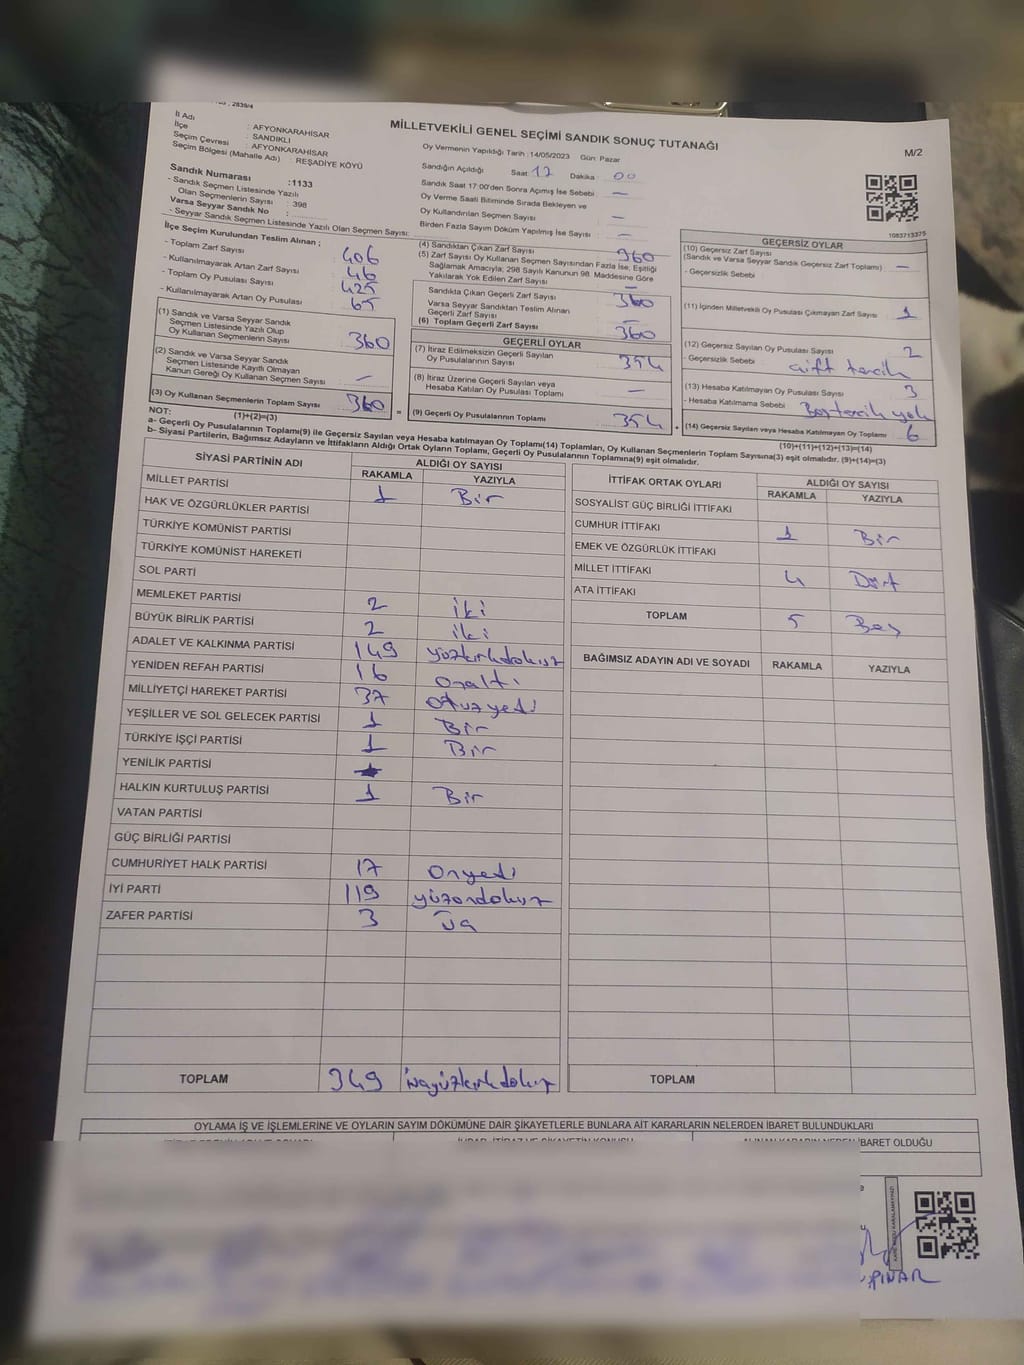 2839/4
MİLLETVEKİLİ GENEL SEÇİMİ SANDIK SONUÇ TUTANAĞI
M/2
İl Adı : AFYONKARAHİSAR
İlçe : SANDIKLI
Seçim Çevresi : AFYONKARAHİSAR
Seçim Bölgesi (Mahalle Adı) : REŞADİYE KÖYÜ
Sandık Numarası :1133
- Sandık Seçmen Listesinde Yazılı
Olan Seçmenlerin Sayısı : 398
Varsa Seyyar Sandık No :
- Seyyar Sandık Seçmen Listesinde Yazılı Olan Seçmen Sayısı:
Oy Vermenin Yapıldığı Tarih :14/05/2023 Gün: Pazar
Sandığın Açıldığı Saat: 17 Dakika : 00
Sandık Saat 17:00'den Sonra Açımış İse Sebebi : —
Oy Verme Saati Bitiminde Sırada Bekleyen ve
Oy Kullandırılan Seçmen Sayısı : —
Birden Fazla Sayım Döküm Yapılmış İse Sayısı : —
1083713375
İlçe Seçim Kurulundan Teslim Alınan ;
- Toplam Zarf Sayısı : 406
- Kullanılmayarak Artan Zarf Sayısı : 46
- Toplam Oy Pusulası Sayısı : 425
- Kullanılmayarak Artan Oy Pusulası : 65
(1) Sandık ve Varsa Seyyar Sandık
Seçmen Listesinde Yazılı Olup
Oy Kullanan Seçmenlerin Sayısı : 360
(2) Sandık ve Varsa Seyyar Sandık
Seçmen Listesinde Kayıtlı Olmayan
Kanun Gereği Oy Kullanan Seçmen Sayısı : —
(3) Oy Kullanan Seçmenlerin Toplam Sayısı : 360
(1)+(2)=(3)
(4) Sandıktan Çıkan Zarf Sayısı : 360
(5) Zarf Sayısı Oy Kullanan Seçmen Sayısından Fazla İse, Eşitliği
Sağlamak Amacıyla; 298 Sayılı Kanunun 98. Maddesine Göre
Yakılarak Yok Edilen Zarf Sayısı : —
Sandıkta Çıkan Geçerli Zarf Sayısı : 360
Varsa Seyyar Sandıktan Teslim Alınan
Geçerli Zarf Sayısı : —
(6) Toplam Geçerli Zarf Sayısı : 360
GEÇERLİ OYLAR
(7) İtiraz Edilmeksizin Geçerli Sayılan
Oy Pusulalarının Sayısı : 354
(8) İtiraz Üzerine Geçerli Sayılan veya
Hesaba Katılan Oy Pusulası Toplamı : —
= (9) Geçerli Oy Pusulalarının Toplamı : 354
GEÇERSİZ OYLAR
(10) Geçersiz Zarf Sayısı
(Sandık ve Varsa Seyyar Sandık Geçersiz Zarf Toplamı) : —
- Geçersizlik Sebebi :
(11) İçinden Milletvekili Oy Pusulası Çıkmayan Zarf Sayısı : 1
(12) Geçersiz Sayılan Oy Pusulası Sayısı : 2
- Geçersizlik Sebebi : çift tercih
(13) Hesaba Katılmayan Oy Pusulası Sayısı : 3
- Hesaba Katılmama Sebebi : Boş tercih yok
+ (14) Geçersiz Sayılan veya Hesaba Katılmayan Oy Toplamı : 6
(10)+(11)+(12)+(13)=(14)
NOT:
a- Geçerli Oy Pusulalarının Toplamı(9) ile Geçersiz Sayılan veya Hesaba katılmayan Oy Toplamı(14) Toplamları, Oy Kullanan Seçmenlerin Toplam Sayısına(3) eşit olmalıdır. (9)+(14)=(3)
b- Siyasi Partilerin, Bağımsız Adayların ve İttifakların Aldığı Ortak Oyların Toplamı, Geçerli Oy Pusulalarının Toplamına(9) eşit olmalıdır.
SİYASİ PARTİNİN ADI ALDIĞI OY SAYISI
RAKAMLA YAZIYLA
MİLLET PARTİSİ 1 Bir
HAK VE ÖZGÜRLÜKLER PARTİSİ
TÜRKİYE KOMÜNİST PARTİSİ
TÜRKİYE KOMÜNİST HAREKETİ
SOL PARTİ
MEMLEKET PARTİSİ 2 iki
BÜYÜK BİRLİK PARTİSİ 2 iki
ADALET VE KALKINMA PARTİSİ 149 yüzkırkdokuz
YENİDEN REFAH PARTİSİ 16 Onaltı
MİLLİYETÇİ HAREKET PARTİSİ 37 Otuzyedi
YEŞİLLER VE SOL GELECEK PARTİSİ 1 Bir
TÜRKİYE İŞÇİ PARTİSİ 1 Bir
YENİLİK PARTİSİ
HALKIN KURTULUŞ PARTİSİ 1 Bir
VATAN PARTİSİ
GÜÇ BİRLİĞİ PARTİSİ
CUMHURİYET HALK PARTİSİ 17 Onyedi
İYİ PARTİ 119 yüzondokuz
ZAFER PARTİSİ 3 Üç
TOPLAM 349 üçyüzkırkdokuz
İTTİFAK ORTAK OYLARI ALDIĞI OY SAYISI
RAKAMLA YAZIYLA
SOSYALİST GÜÇ BİRLİĞİ İTTİFAKI
CUMHUR İTTİFAKI 1 Bir
EMEK VE ÖZGÜRLÜK İTTİFAKI
MİLLET İTTİFAKI 4 Dört
ATA İTTİFAKI
TOPLAM 5 Beş
BAĞIMSIZ ADAYIN ADI VE SOYADI RAKAMLA YAZIYLA
TOPLAM
OYLAMA İŞ VE İŞLEMLERİNE VE OYLARIN SAYIM DÖKÜMÜNE DAİR ŞİKAYETLERLE BUNLARA AİT KARARLARIN NELERDEN İBARET BULUNDUKLARI
İBARET OLDUĞU
PINAR